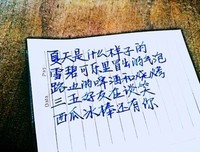 夏天是什么样子的
雪碧可乐里冒出的气泡
路边的啤酒和烧烤
三五好友在谈笑
西瓜冰棒还有你